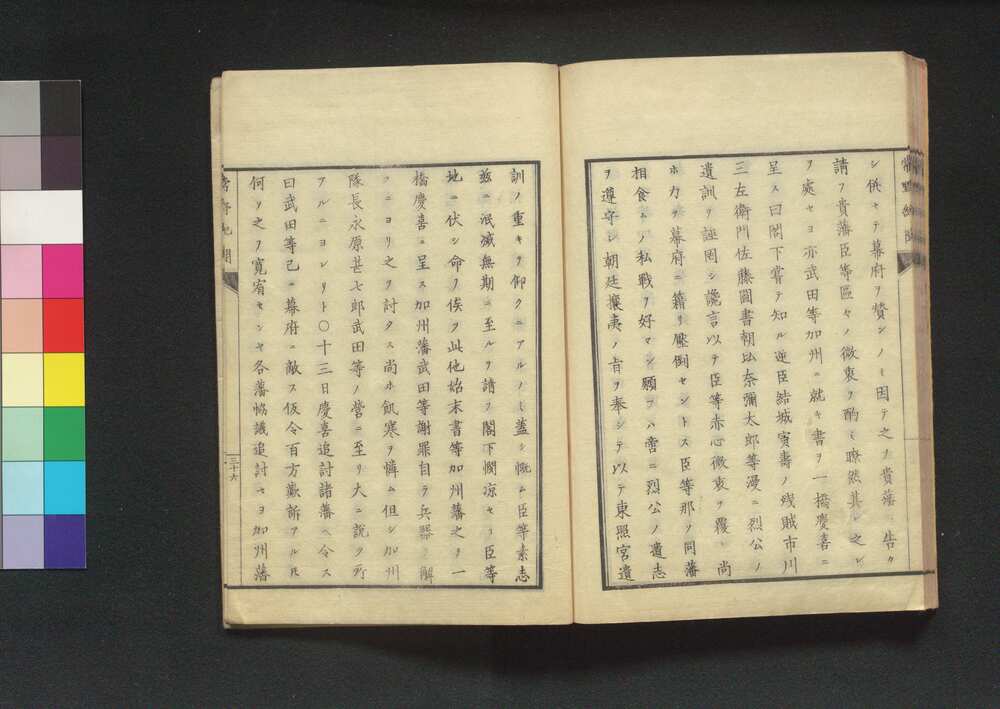 シ併セテ幕府ヲ賛シ因テ之ヲ貴藩ニ告ク
請フ貴藩臣等區々ノ微衷ヲ酌ミ瞭然其レ之レ
ヲ處セヨ亦武田等加州ニ就キ書ヲ一橋慶喜ニ
呈ス曰閣下嘗テ知ル逆臣結城寅壽ノ残賊市川
三左衛門佐藤圖書朝比奈彌太郎等漫ニ烈公ノ
遺訓ヲ誣罔シ讒言以テ臣等赤心微衷ヲ覆ヒ尚
ホ力ヲ幕府ニ籍リ壓倒セントス臣等那ソ同藩
相食ムノ私戰ヲ好マン願フハ啻ニ烈公ノ遺志
ヲ遵守シ朝廷攘夷ノ旨ヲ奉シテ以テ東照宮遺
訓ノ重キヲ仰クニアルノミ蓋シ慨ム臣等素志
茲ニ泯滅無期ニ至ルヲ請フ閣下憫凉セヨ臣等
地ニ伏シ命ノ俟ヲ此他始末書等加州藩之ヲ一
橋慶喜ニ呈ス加州藩武田等謝罪自ラ兵器ヲ解
クニヨリ之ヲ討タス尚ホ飢寒ヲ憐ム但シ加州
隊長永原甚七郎武田等ノ營ニ至リ大ニ說ク所
アルニヨレリト〇十三日慶喜追討諸藩ヘ令ス
曰武田等己ニ幕府ニ敵ス仮令百方歎訴アルモ
何ソ之ヲ寛宥センヤ各藩協議追討セヨ加州藩
三十六